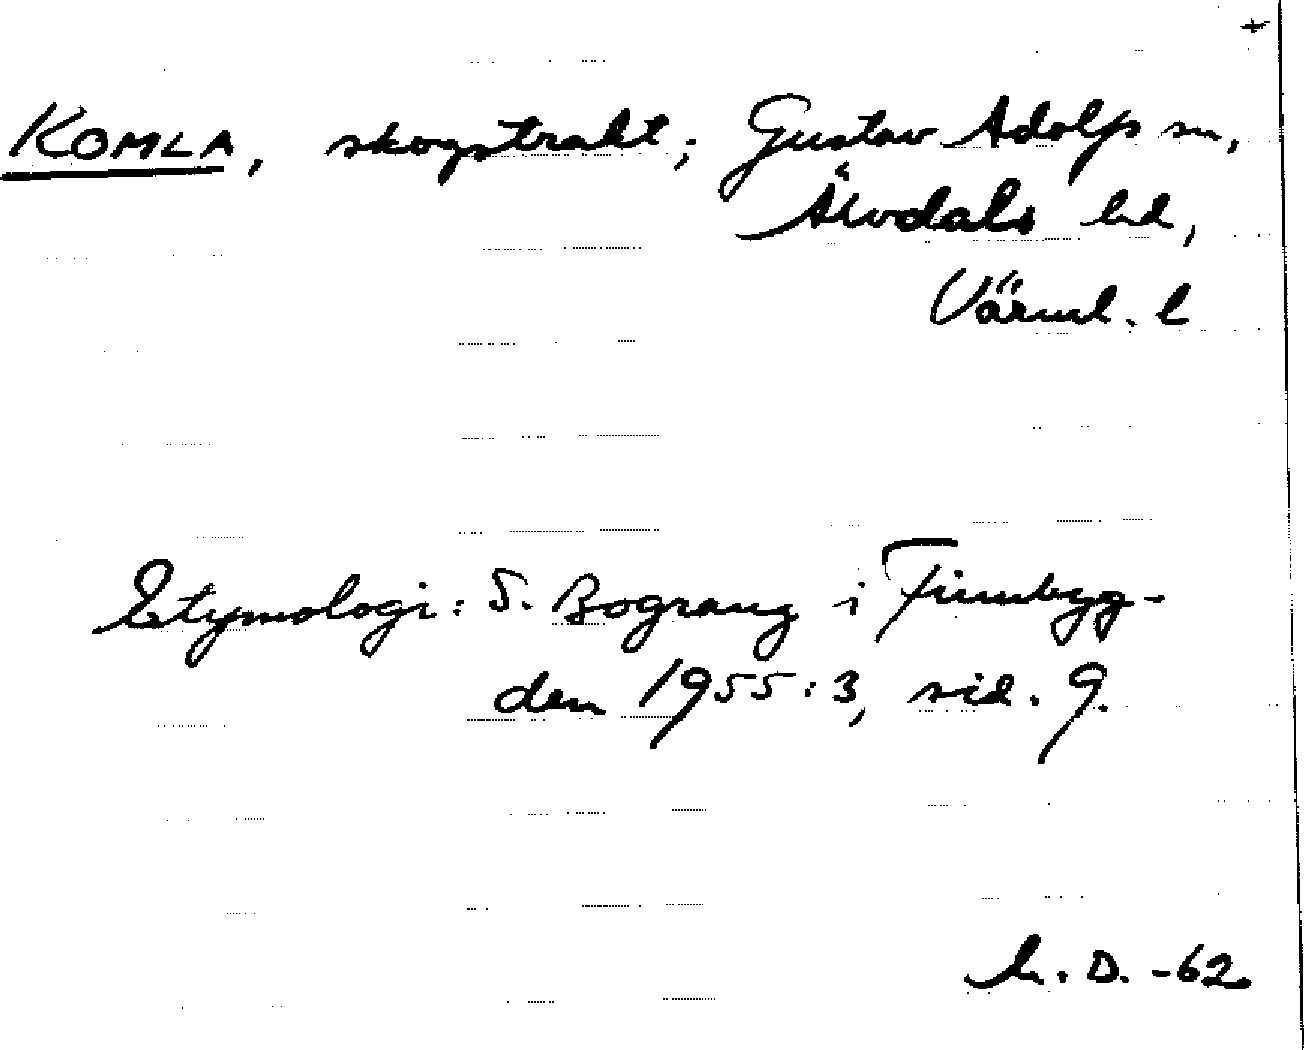 KOMLA, skogstrakt; Gustav Adolfs sn,
Älvdals hd,
Värml. l
Etymologi: S. Bograng i Finnbyg-
den 1955:3, sid. 9.
h. D. -62